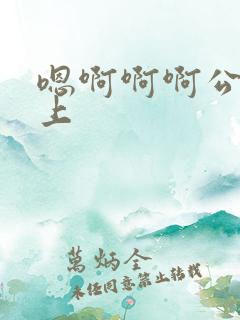 嗯啊啊啊公
上
萬炳全
未任同意禁止转载